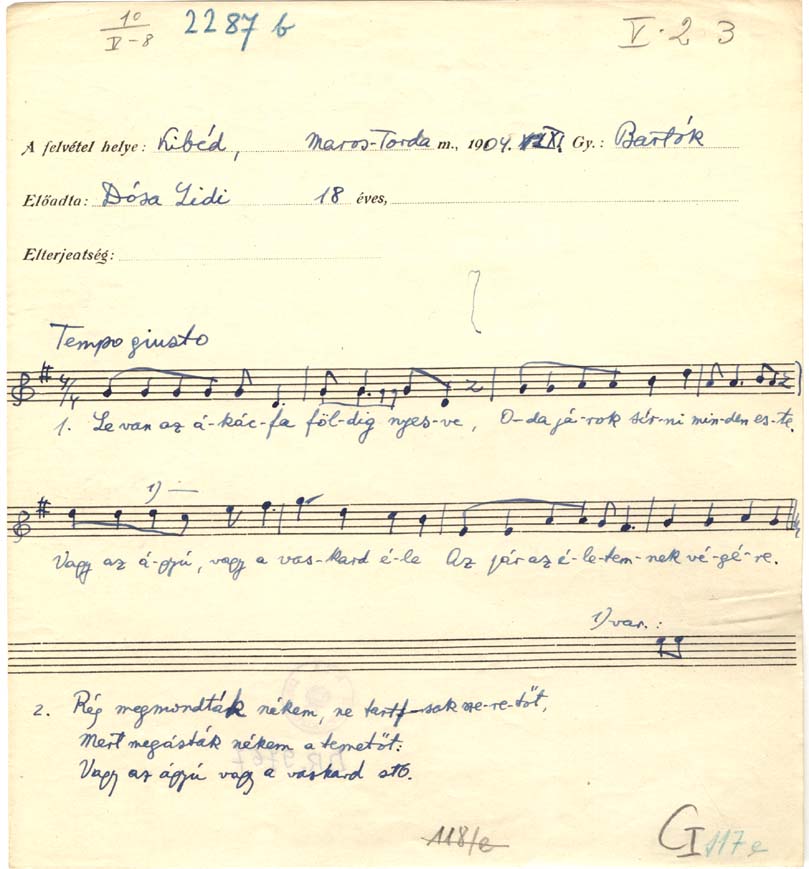 10 / V-8 2287 b V. 2 3
A felvétel helye: Kibéd, Maros-Torda m., 1904. Gy.: Bartók
Előadta: Dósa Lidi 18 éves,
Elterjeatség:
Tempo giusto
4/4
1. Le van az á-kác-fa föl-dig nyes-ve, O-da já-rok sír-ni min-den es-te.
1)
Vagy az á-gyú, vagy a vas-kard é-le Az jár az é-le-tem-nek vé-gé-re.
1) var.:
2. Rég megmondták nékem, ne tart-sak sze-re-tőt,
Mert megásták nékem a temetőt:
Vagy az ágyú vagy a vaskard stb.
118/e GI 117e